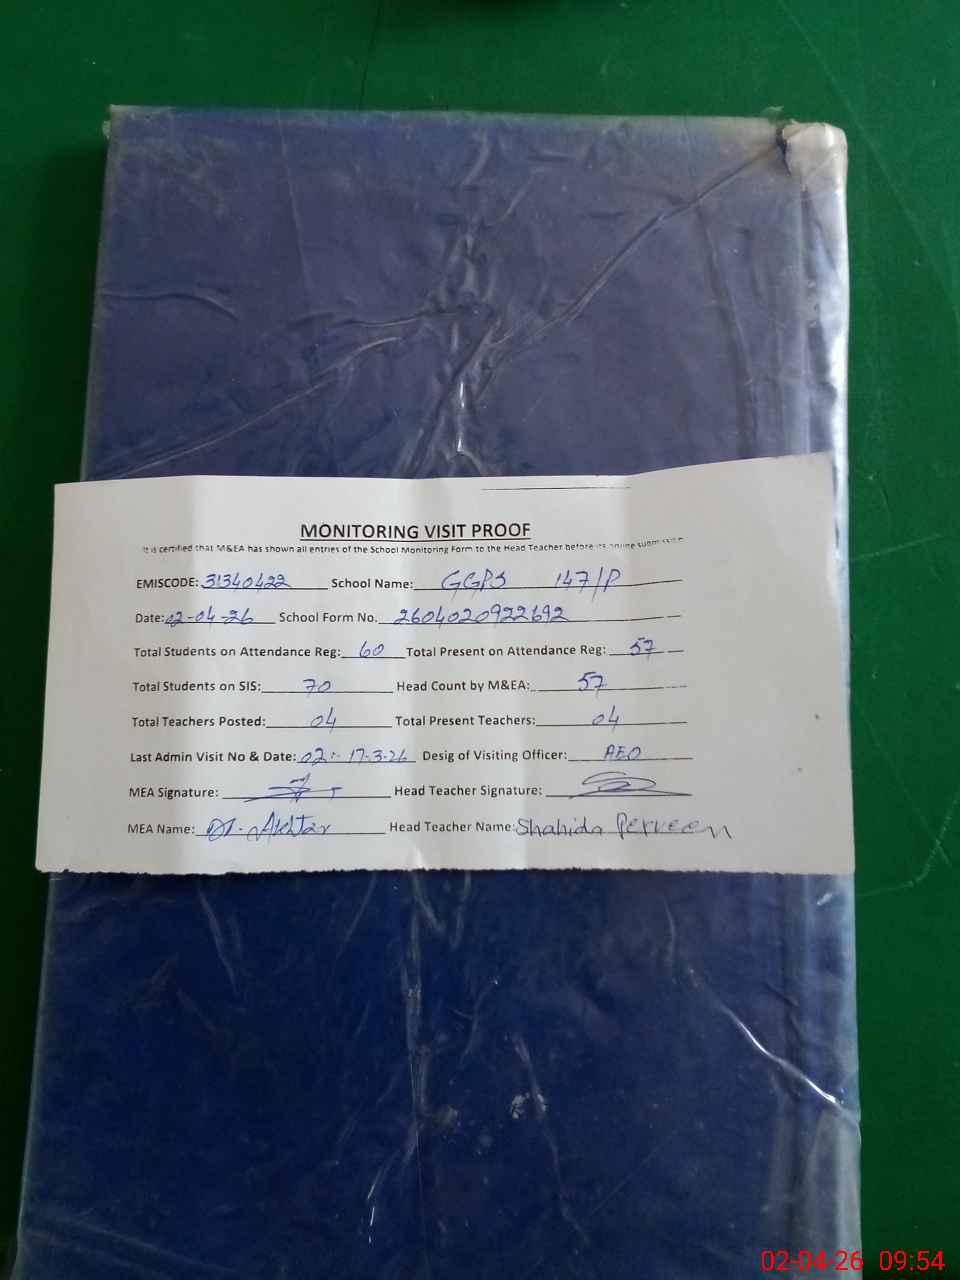 MONITORING VISIT PROOF
It is certified that M&EA has shown all entries of the School Monitoring Form to the Head Teacher before its online submission
EMISCODE: 31340422 School Name: GGPS 147/P
Date: 02-04-26 School Form No. 2604020922692
Total Students on Attendance Reg: 60 Total Present on Attendance Reg: 57
Total Students on SIS: 70 Head Count by M&EA: 57
Total Teachers Posted: 04 Total Present Teachers: 04
Last Admin Visit No & Date: 02:- 17-3-26 Desig of Visiting Officer: AEO
MEA Signature: Head Teacher Signature:
MEA Name: Akhtar Head Teacher Name: Shahida Perveen
02-04-26 09:54